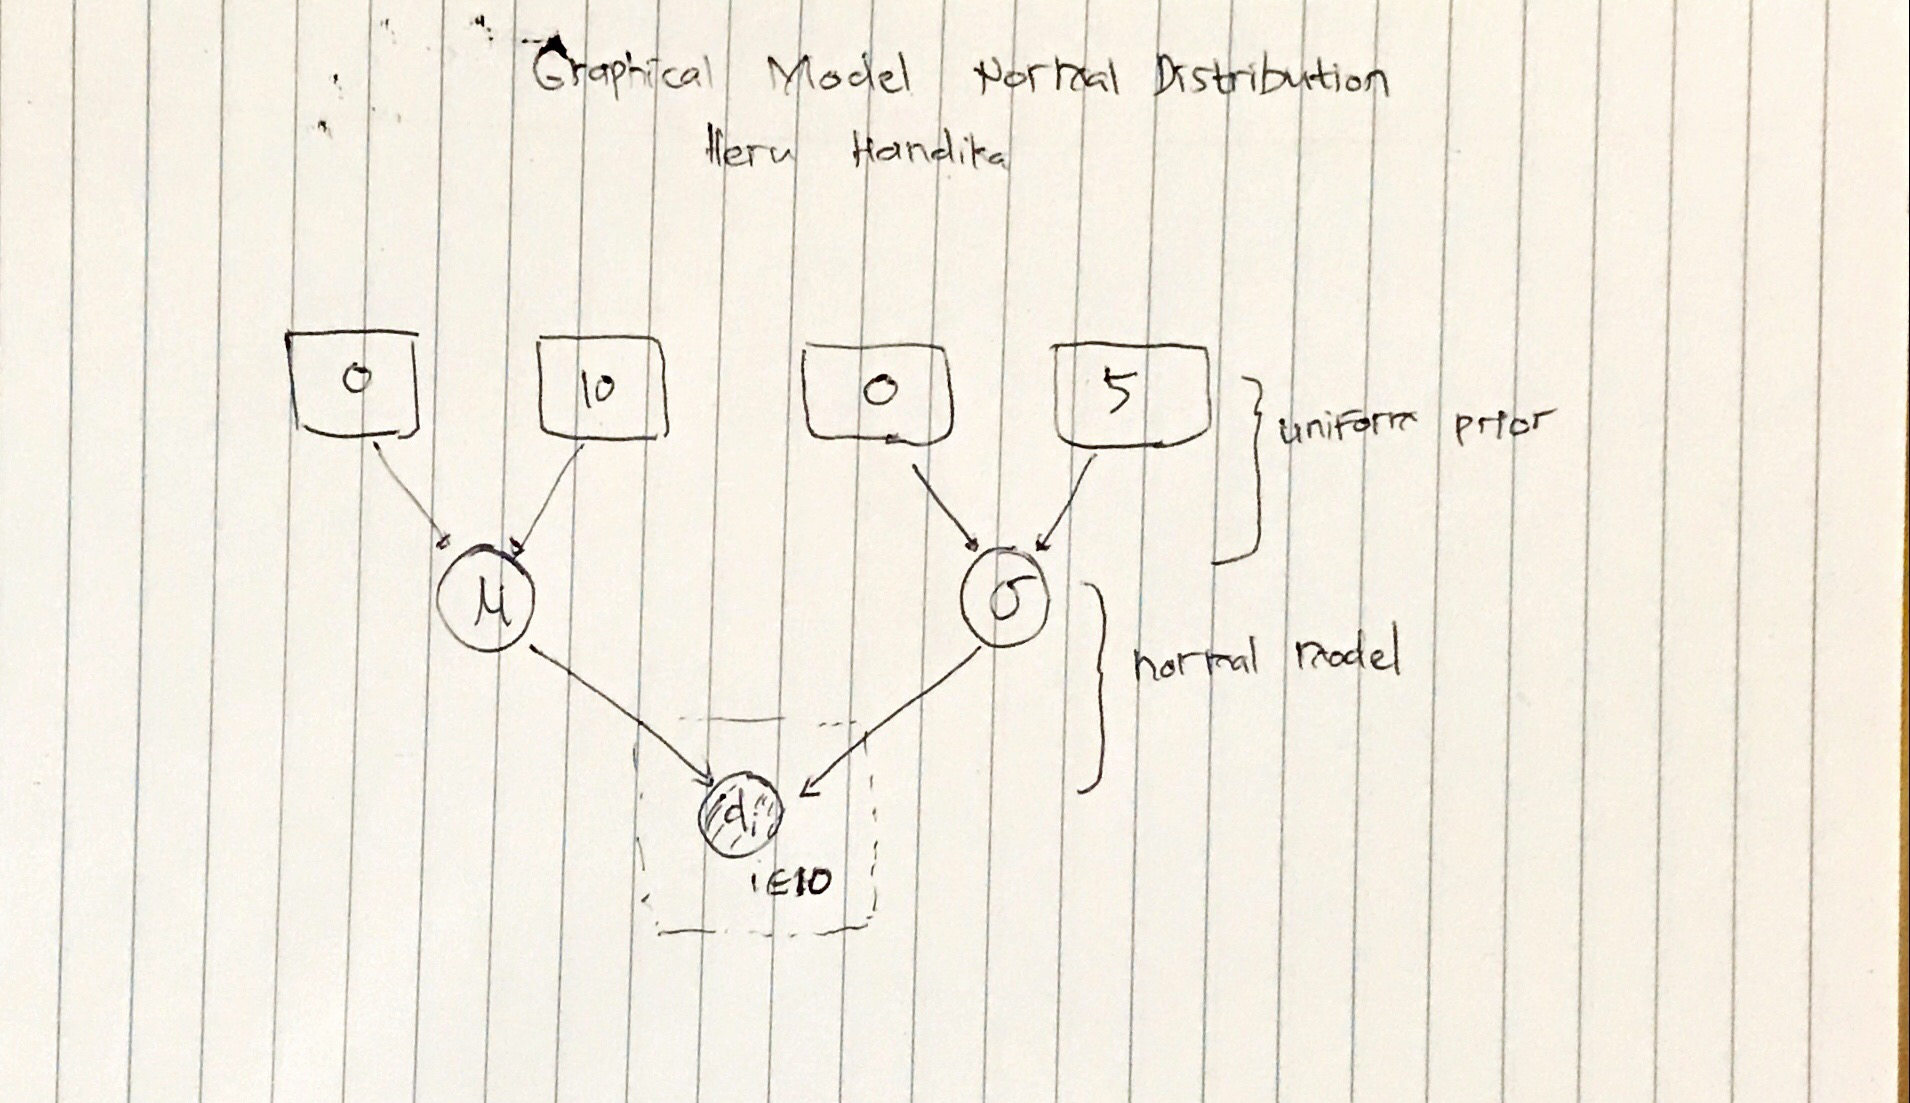 Graphical Model Normal Distribution
Heru Handika
0 10 0 5
uniform prior
μ σ
normal model
di
i∈10